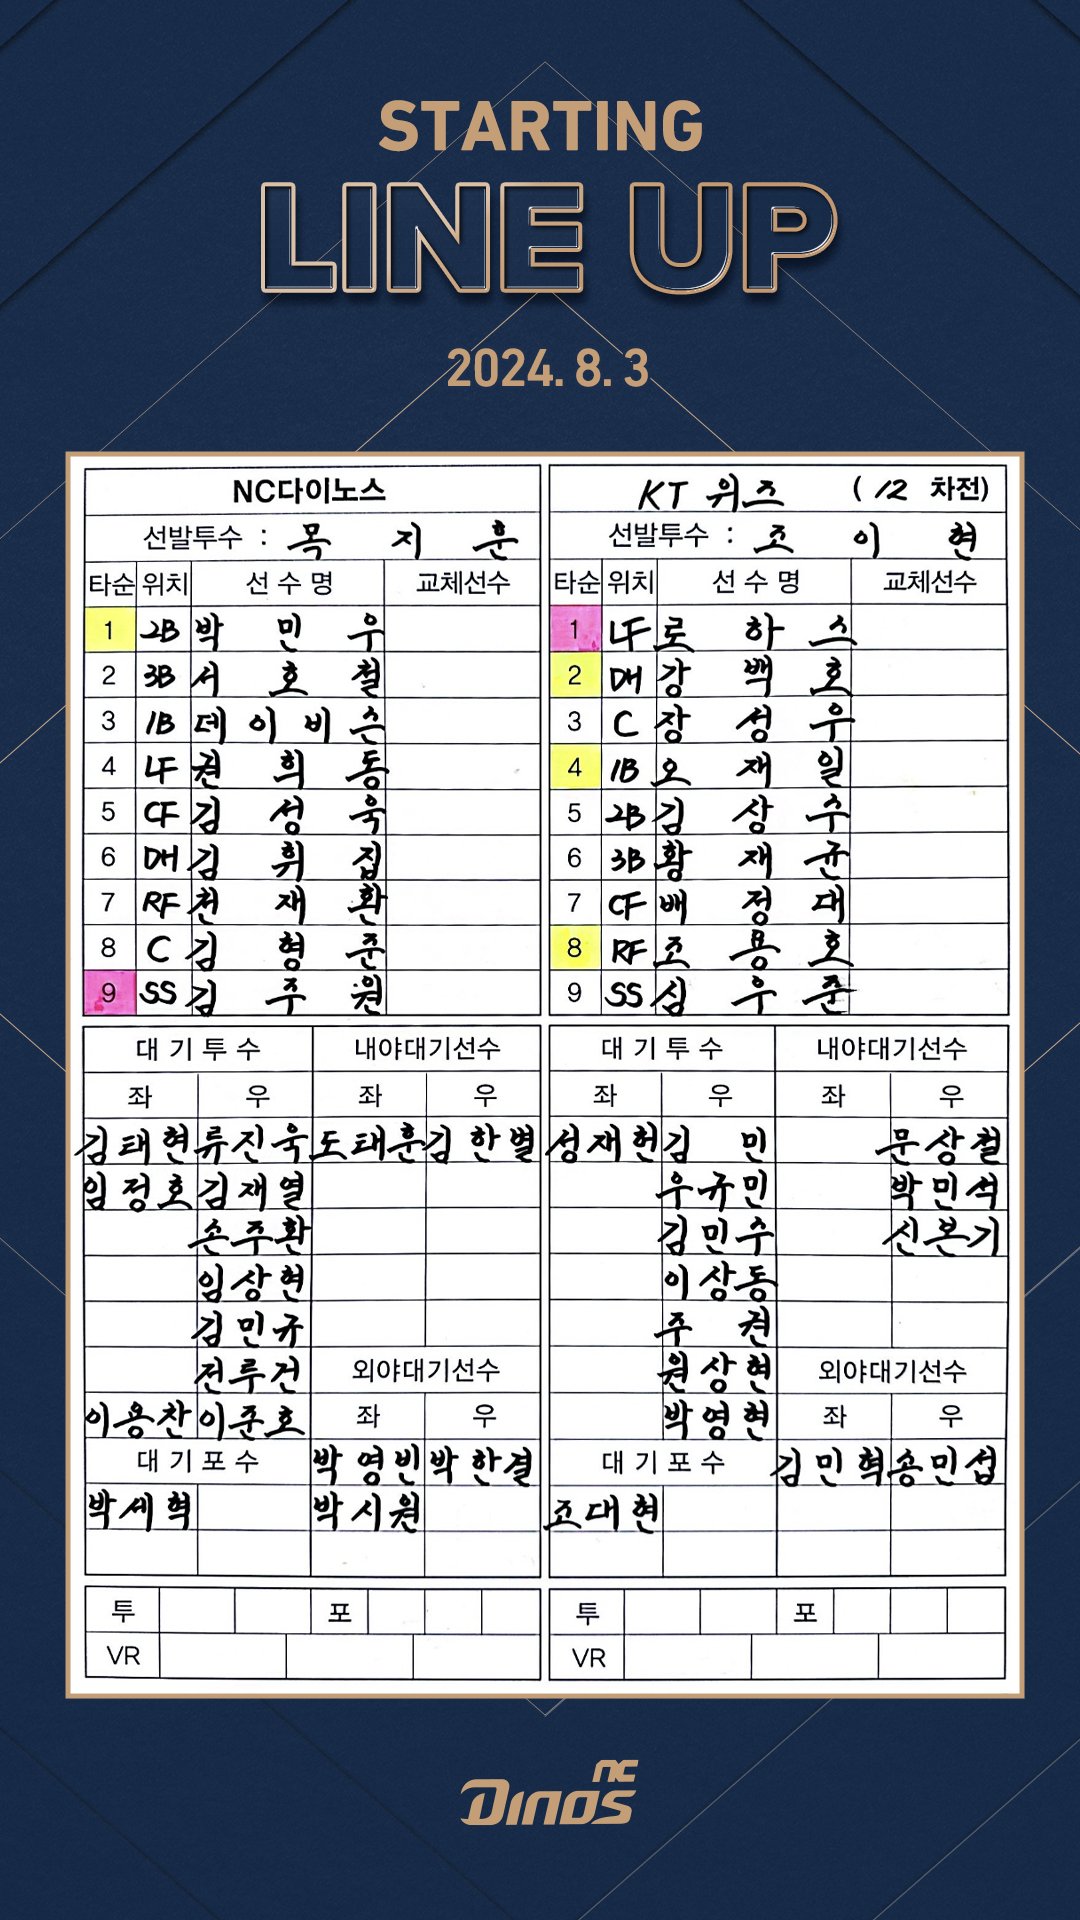 STARTING
LINE UP
2024. 8. 3
NC다이노스
선발투수 : 목지훈
타순 위치 선수명 교체선수
1 2B 박민우
2 3B 서호철
3 1B 데이비슨
4 LF 권희동
5 CF 김성욱
6 DH 김휘집
7 RF 천재환
8 C 김형준
9 SS 김주원
대기투수 내야대기선수
좌 우 좌 우
김태현 류진욱 도태훈 김한별
임정호 김재열
손주환
임상현
김민규
전루건 외야대기선수
이용찬 이준호 좌 우
대기포수 박영빈 박한결
박세혁 박시원
투 포
VR
KT 위즈 (12 차전)
선발투수 : 조이현
타순 위치 선수명 교체선수
1 LF 로하스
2 DH 강백호
3 C 장성우
4 1B 오재일
5 2B 김상수
6 3B 황재균
7 CF 배정대
8 RF 조용호
9 SS 심우준
대기투수 내야대기선수
좌 우 좌 우
성재헌 김민 문상철
우규민 박민석
김민수 신본기
이상동
주권
원상현 외야대기선수
박영현 좌 우
대기포수 김민혁 송민섭
조대현
투 포
VR
nc
Dinos